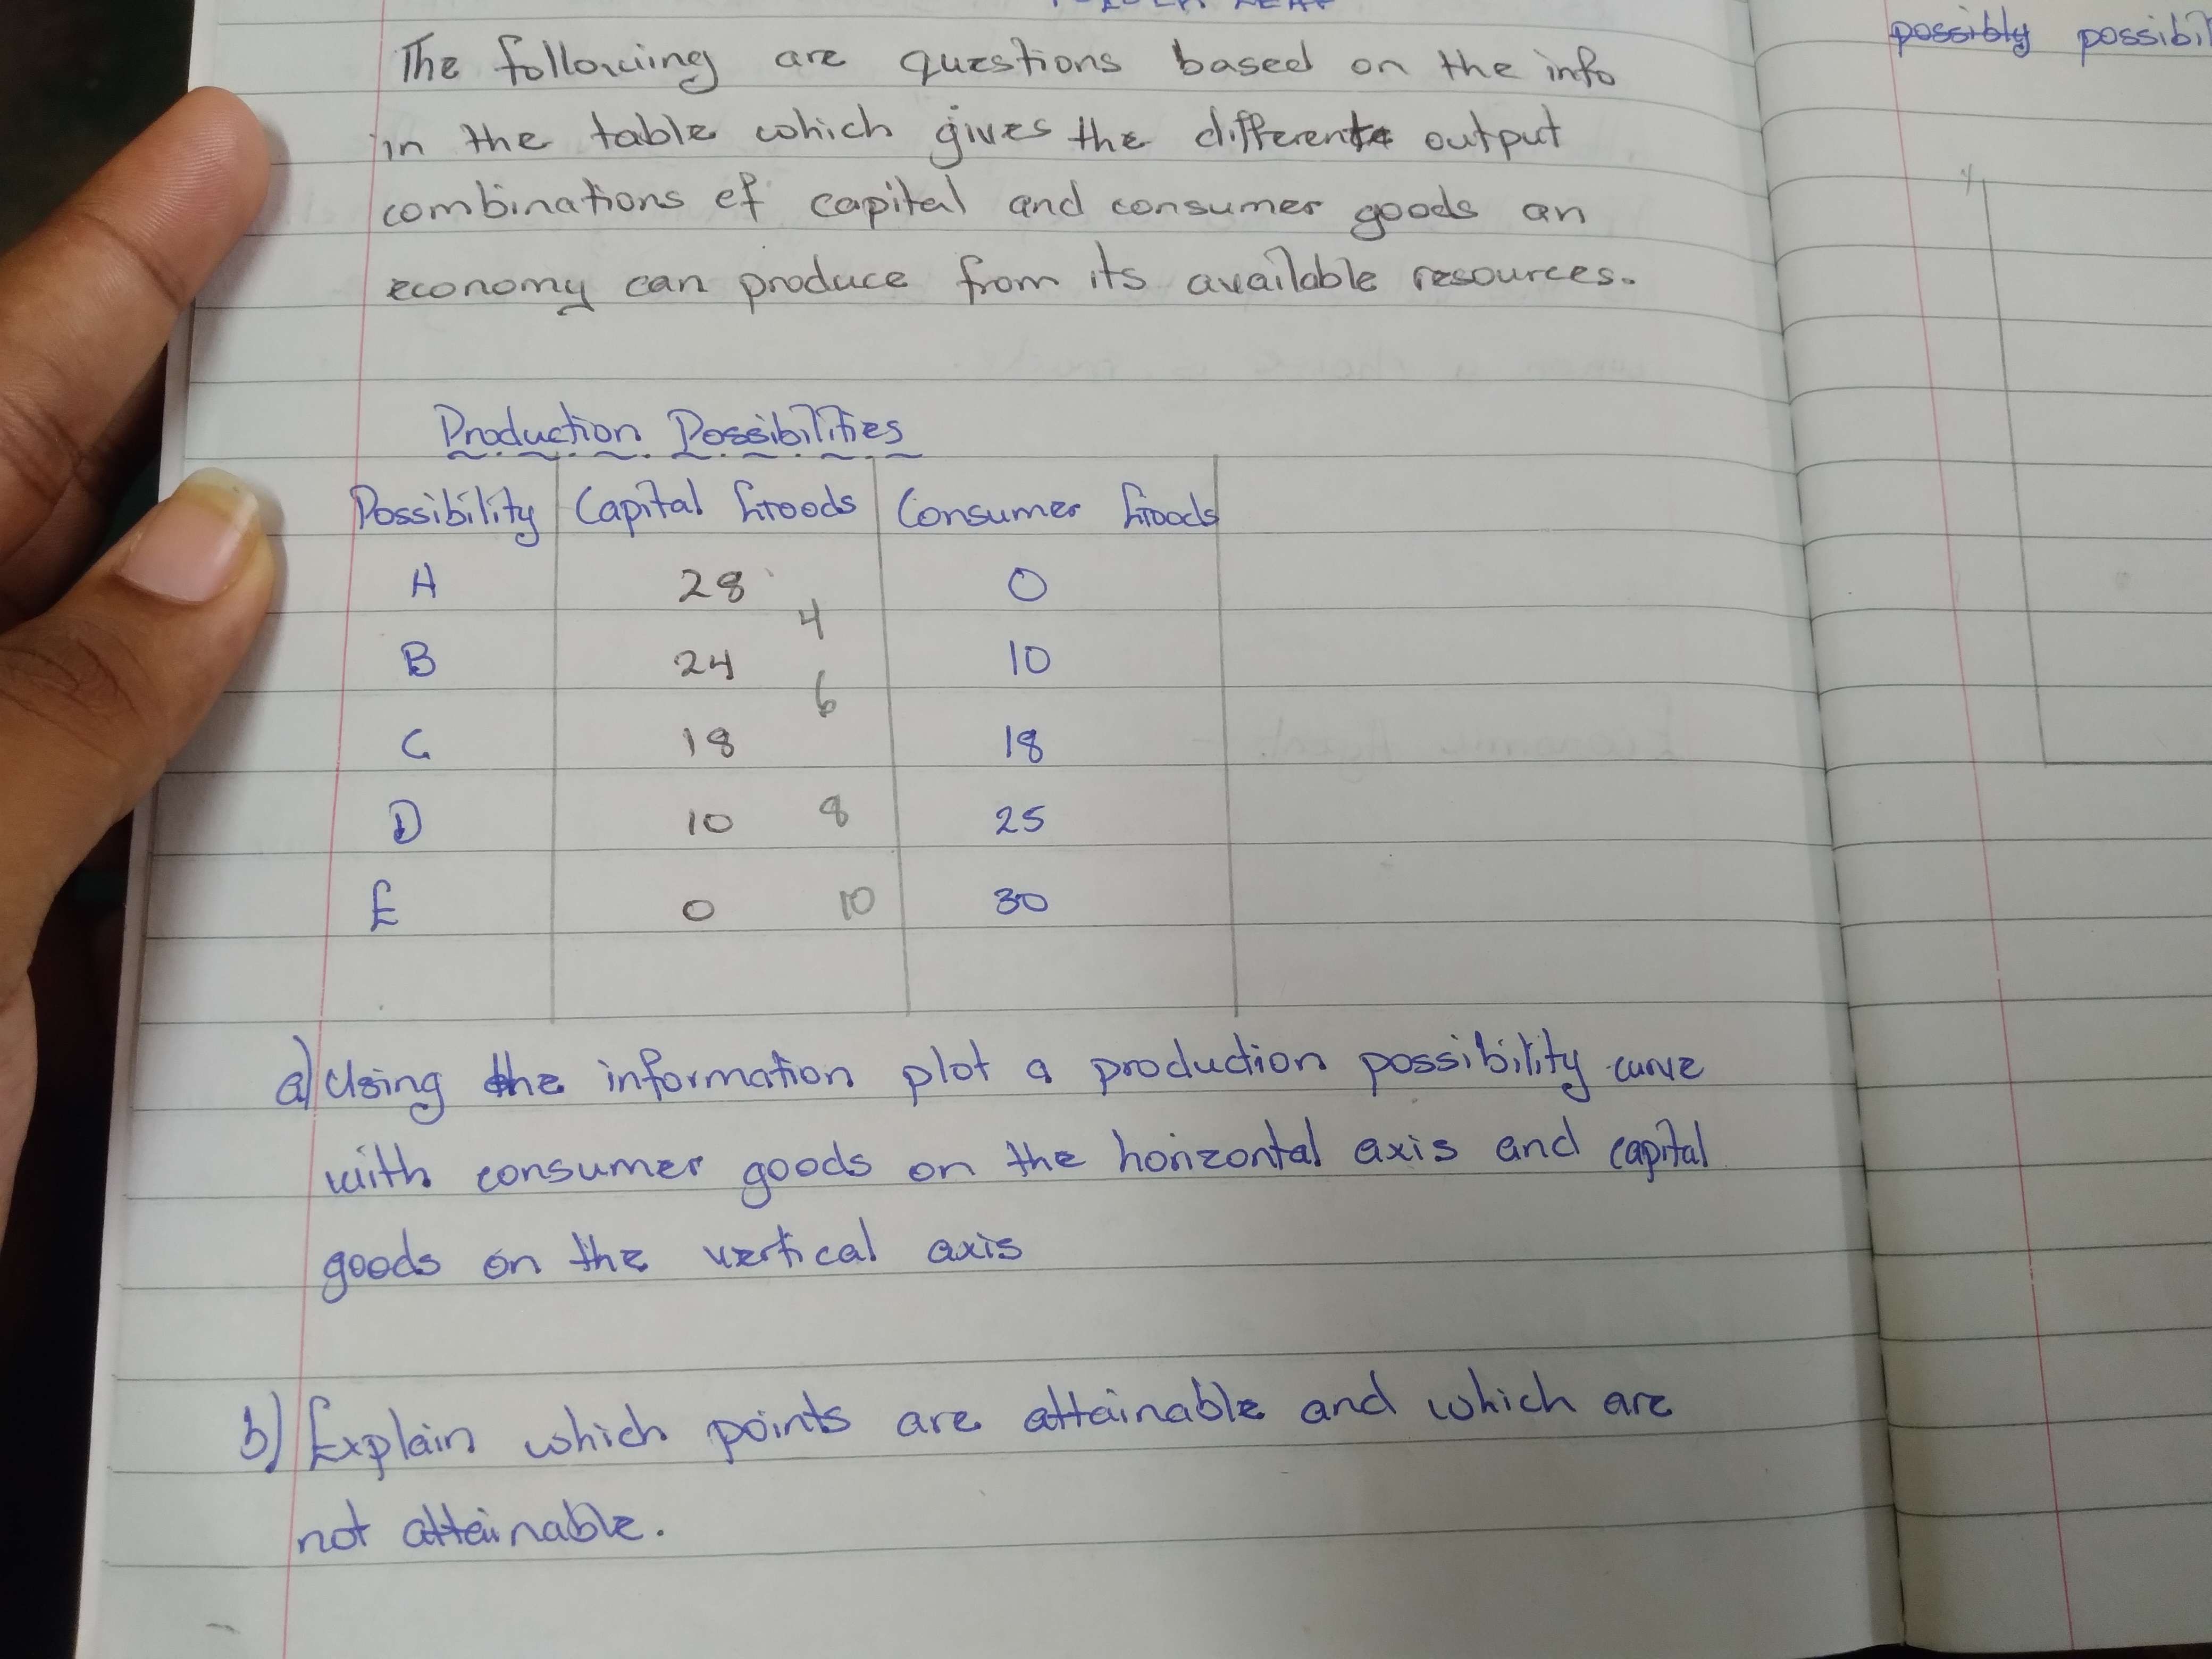 The following are questions based on the info
in the table which gives the different output
combinations of capital and consumer goods an
economy can produce from its available resources.
Production Possibilities
Possibility Capital Goods Consumer Goods
A 28 0
4
B 24 10
6
C 18 18
D 10 8 25
E 0 10 30
a) Using the information plot a production possibility curve
with consumer goods on the horizontal axis and capital
goods on the vertical axis
b) Explain which points are attainable and which are
not attainable.
possibly